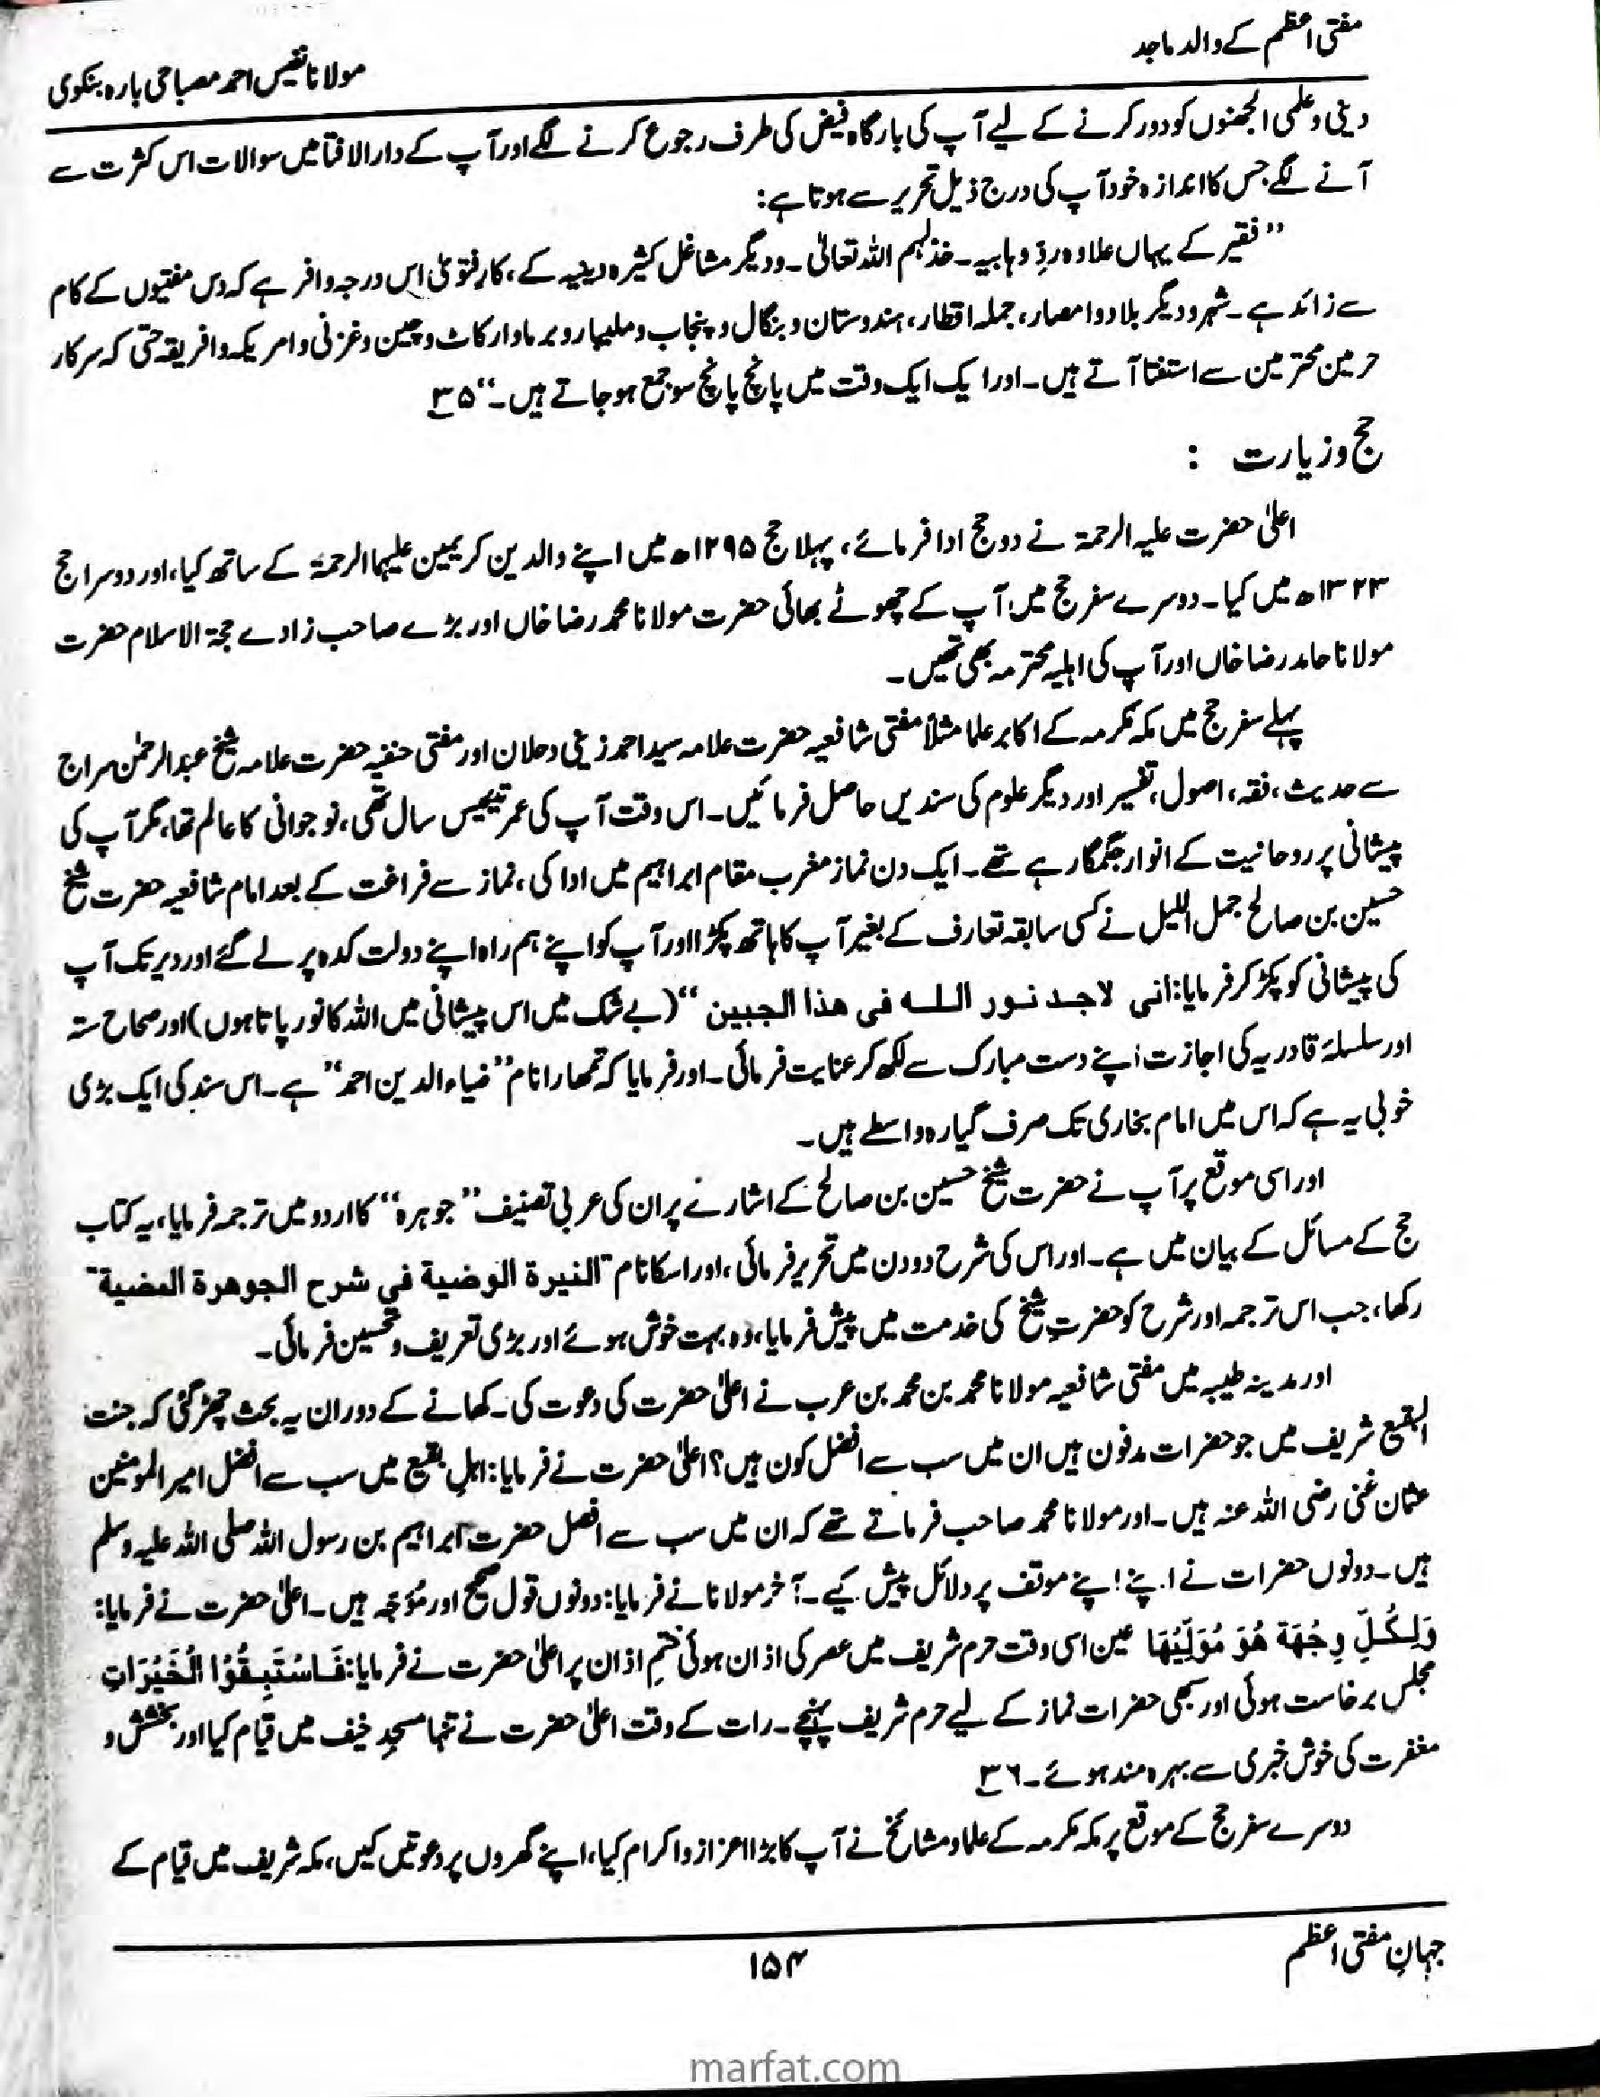 مفتی اعظم کے والد ماجد
مولانا نفیس احمد مصباحی بارہ بنکوی
دینی و علمی الجھنوں کو دور کرنے کے لیے آپ کی بارگاہ فیض کی طرف رجوع کرنے لگے اور آپ کے دارالافتا میں سوالات اس کثرت سے
آنے لگے جس کا اندازہ خود آپ کی درج ذیل تحریر سے ہوتا ہے:
”فقیر کے یہاں علاوہ ردِّ وہابیہ۔ خذلہم اللہ تعالیٰ۔ ودیگر مشاغل کثیرہ دینیہ کے، کارِ فتویٰ اس درجہ وافر ہے کہ دس مفتیوں کے کام
سے زائد ہے۔ شہر و دیگر بلاد و امصار، جملہ اقطار، ہندوستان و بنگال و پنجاب و ملیبار و برما و ارکاٹ و چین و غزنی و امریکہ و افریقہ حتی کہ سرکار
حرمین محترمین سے استفتا آتے ہیں۔ اور ایک ایک وقت میں پانچ پانچ سو جمع ہوجاتے ہیں۔“ ۳۵
حج و زیارت :
اعلیٰ حضرت علیہ الرحمۃ نے دو حج ادا فرمائے، پہلا حج ۱۲۹۵ھ میں اپنے والدین کریمین علیہما الرحمۃ کے ساتھ کیا، اور دوسرا حج
۱۳۲۳ھ میں کیا۔ دوسرے سفر حج میں آپ کے چھوٹے بھائی حضرت مولانا محمد رضا خاں اور بڑے صاحب زادے حجۃ الاسلام حضرت
مولانا حامد رضا خاں اور آپ کی اہلیہ محترمہ بھی تھیں۔
پہلے سفر حج میں مکہ مکرمہ کے اکابر علما مثلاً مفتی شافعیہ حضرت علامہ سید احمد زینی دحلان اور مفتی حنفیہ حضرت علامہ شیخ عبدالرحمٰن سراج
سے حدیث، فقہ، اصول، تفسیر اور دیگر علوم کی سندیں حاصل فرمائیں۔ اس وقت آپ کی عمر تیئیس سال تھی، نوجوانی کا عالم تھا، مگر آپ کی
پیشانی پر روحانیت کے انوار جگمگا رہے تھے۔ ایک دن نماز مغرب مقام ابراہیم میں ادا کی، نماز سے فراغت کے بعد امام شافعیہ حضرت شیخ
حسین بن صالح جمل اللیل نے کسی سابقہ تعارف کے بغیر آپ کا ہاتھ پکڑا اور آپ کو اپنے ہم راہ اپنے دولت کدہ پر لے گئے اور دیر تک آپ
کی پیشانی کو پکڑ کر فرمایا: انی لاجد نور اللہ فی ھذا الجبین “ (بے شک میں اس پیشانی میں اللہ کا نور پاتا ہوں) اور صحاح ستہ
اور سلسلۂ قادریہ کی اجازت اپنے دست مبارک سے لکھ کر عنایت فرمائی۔ اور فرمایا کہ تمھارا نام ”ضیاء الدین احمد“ ہے۔ اس سند کی ایک بڑی
خوبی یہ ہے کہ اس میں امام بخاری تک صرف گیارہ واسطے ہیں۔
اور اسی موقع پر آپ نے حضرت شیخ حسین بن صالح کے اشارے پر ان کی عربی تصنیف ”جوہرہ“ کا اردو میں ترجمہ فرمایا، یہ کتاب
حج کے مسائل کے بیان میں ہے۔ اور اس کی شرح دو دن میں تحریر فرمائی، اور اسکا نام "النیرة الوضیة فی شرح الجوھرة المضیة"
رکھا، جب اس ترجمہ اور شرح کو حضرت شیخ کی خدمت میں پیش فرمایا، وہ بہت خوش ہوئے اور بڑی تعریف و تحسین فرمائی۔
اور مدینہ طیبہ میں مفتی شافعیہ مولانا محمد بن محمد بن عرب نے اعلیٰ حضرت کی دعوت کی۔ کھانے کے دوران یہ بحث چھڑ گئی کہ جنت
البقیع شریف میں جو حضرات مدفون ہیں ان میں سب سے افضل کون ہیں؟ اعلیٰ حضرت نے فرمایا: اہلِ بقیع میں سب سے افضل امیر المومنین
عثمان غنی رضی اللہ عنہ ہیں۔ اور مولانا محمد صاحب فرماتے تھے کہ ان میں سب سے افضل حضرت ابراہیم بن رسول اللہ صلی اللہ علیہ وسلم
ہیں۔ دونوں حضرات نے اپنے اپنے موقف پر دلائل پیش کیے۔ آخر مولانا نے فرمایا: دونوں قول صحیح اور مُوَجَّہ ہیں۔ اعلیٰ حضرت نے فرمایا:
وَلِکُلٍّ وِجْھَة ھُوَ مُوَلِّیْھَا عین اسی وقت حرم شریف میں عصر کی اذان ہوئی ختمِ اذان پر اعلیٰ حضرت نے فرمایا: فَاسْتَبِقُوْا الْخَیْرَاتِ
مجلس برخاست ہوئی اور سبھی حضرات نماز کے لیے حرم شریف پہنچے۔ رات کے وقت اعلیٰ حضرت نے تنہا مسجدِ خیف میں قیام کیا اور بخشش و
مغفرت کی خوش خبری سے بہرہ مند ہوئے۔ ۳۶
دوسرے سفر حج کے موقع پر مکہ مکرمہ کے علما و مشائخ نے آپ کا بڑا اعزاز و اکرام کیا، اپنے گھروں پر دعوتیں کیں، مکہ شریف میں قیام کے
جہانِ مفتی اعظم
۱۵۴
marfat.com